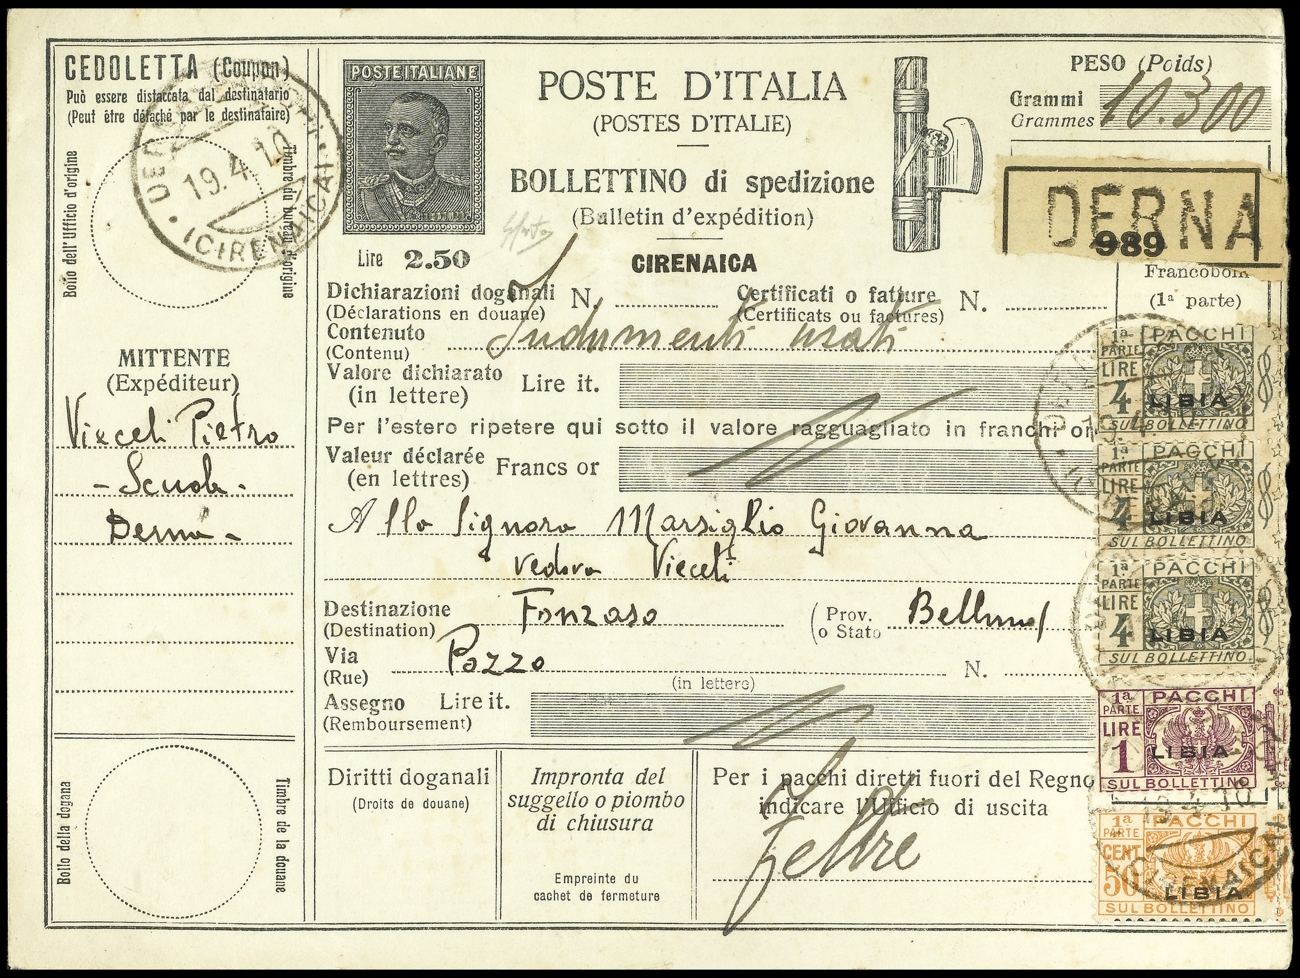 CEDOLETTA (Coupon)
Può essere distaccata dal destinatario
(Peut être détaché par le destinataire)
Bollo dell'Ufficio d'origine
Timbre du bureau d'origine
19.4.10
(CIRENAICA)
MITTENTE
(Expéditeur)
Vieceli Pietro
- Scuola -
Derna -
Bollo della dogana
Timbre de la douane
POSTE ITALIANE
Lire 2.50
POSTE D'ITALIA
(POSTES D'ITALIE)
BOLLETTINO di spedizione
(Bulletin d'expédition)
CIRENAICA
PESO (Poids)
Grammi
Grammes
10.300
DERNA
989
Francobolli
(1ª parte)
Dichiarazioni doganali N.
(Déclarations en douane)
Certificati o fatture N.
(Certificats ou factures)
Contenuto
(Contenu)
Indumenti usati
Valore dichiarato
(in lettere)
Lire it.
Per l'estero ripetere qui sotto il valore ragguagliato in franchi oro
Valeur déclarée
(en lettres)
Francs or
Alla Signora Marsiglio Giovanna
vedova Vieceli
Destinazione
(Destination)
Fonzaso
(Prov.
o Stato
Belluno)
Via
(Rue)
Pozzo
N.
(in lettere)
Assegno Lire it.
(Remboursement)
Diritti doganali
(Droits de douane)
Impronta del
suggello o piombo
di chiusura
Empreinte du
cachet de fermeture
Per i pacchi diretti fuori del Regno
indicare l'Ufficio di uscita
Feltre
1ª PARTE PACCHI
LIRE 4
LIBIA
SUL BOLLETTINO
1ª PARTE PACCHI
LIRE 4
LIBIA
SUL BOLLETTINO
1ª PARTE PACCHI
LIRE 4
LIBIA
SUL BOLLETTINO
1ª PARTE PACCHI
LIRE 1
LIBIA
SUL BOLLETTINO
19.4.10
1ª PARTE PACCHI
CENT 50
LIBIA
(CIRENAICA)
SUL BOLLETTINO